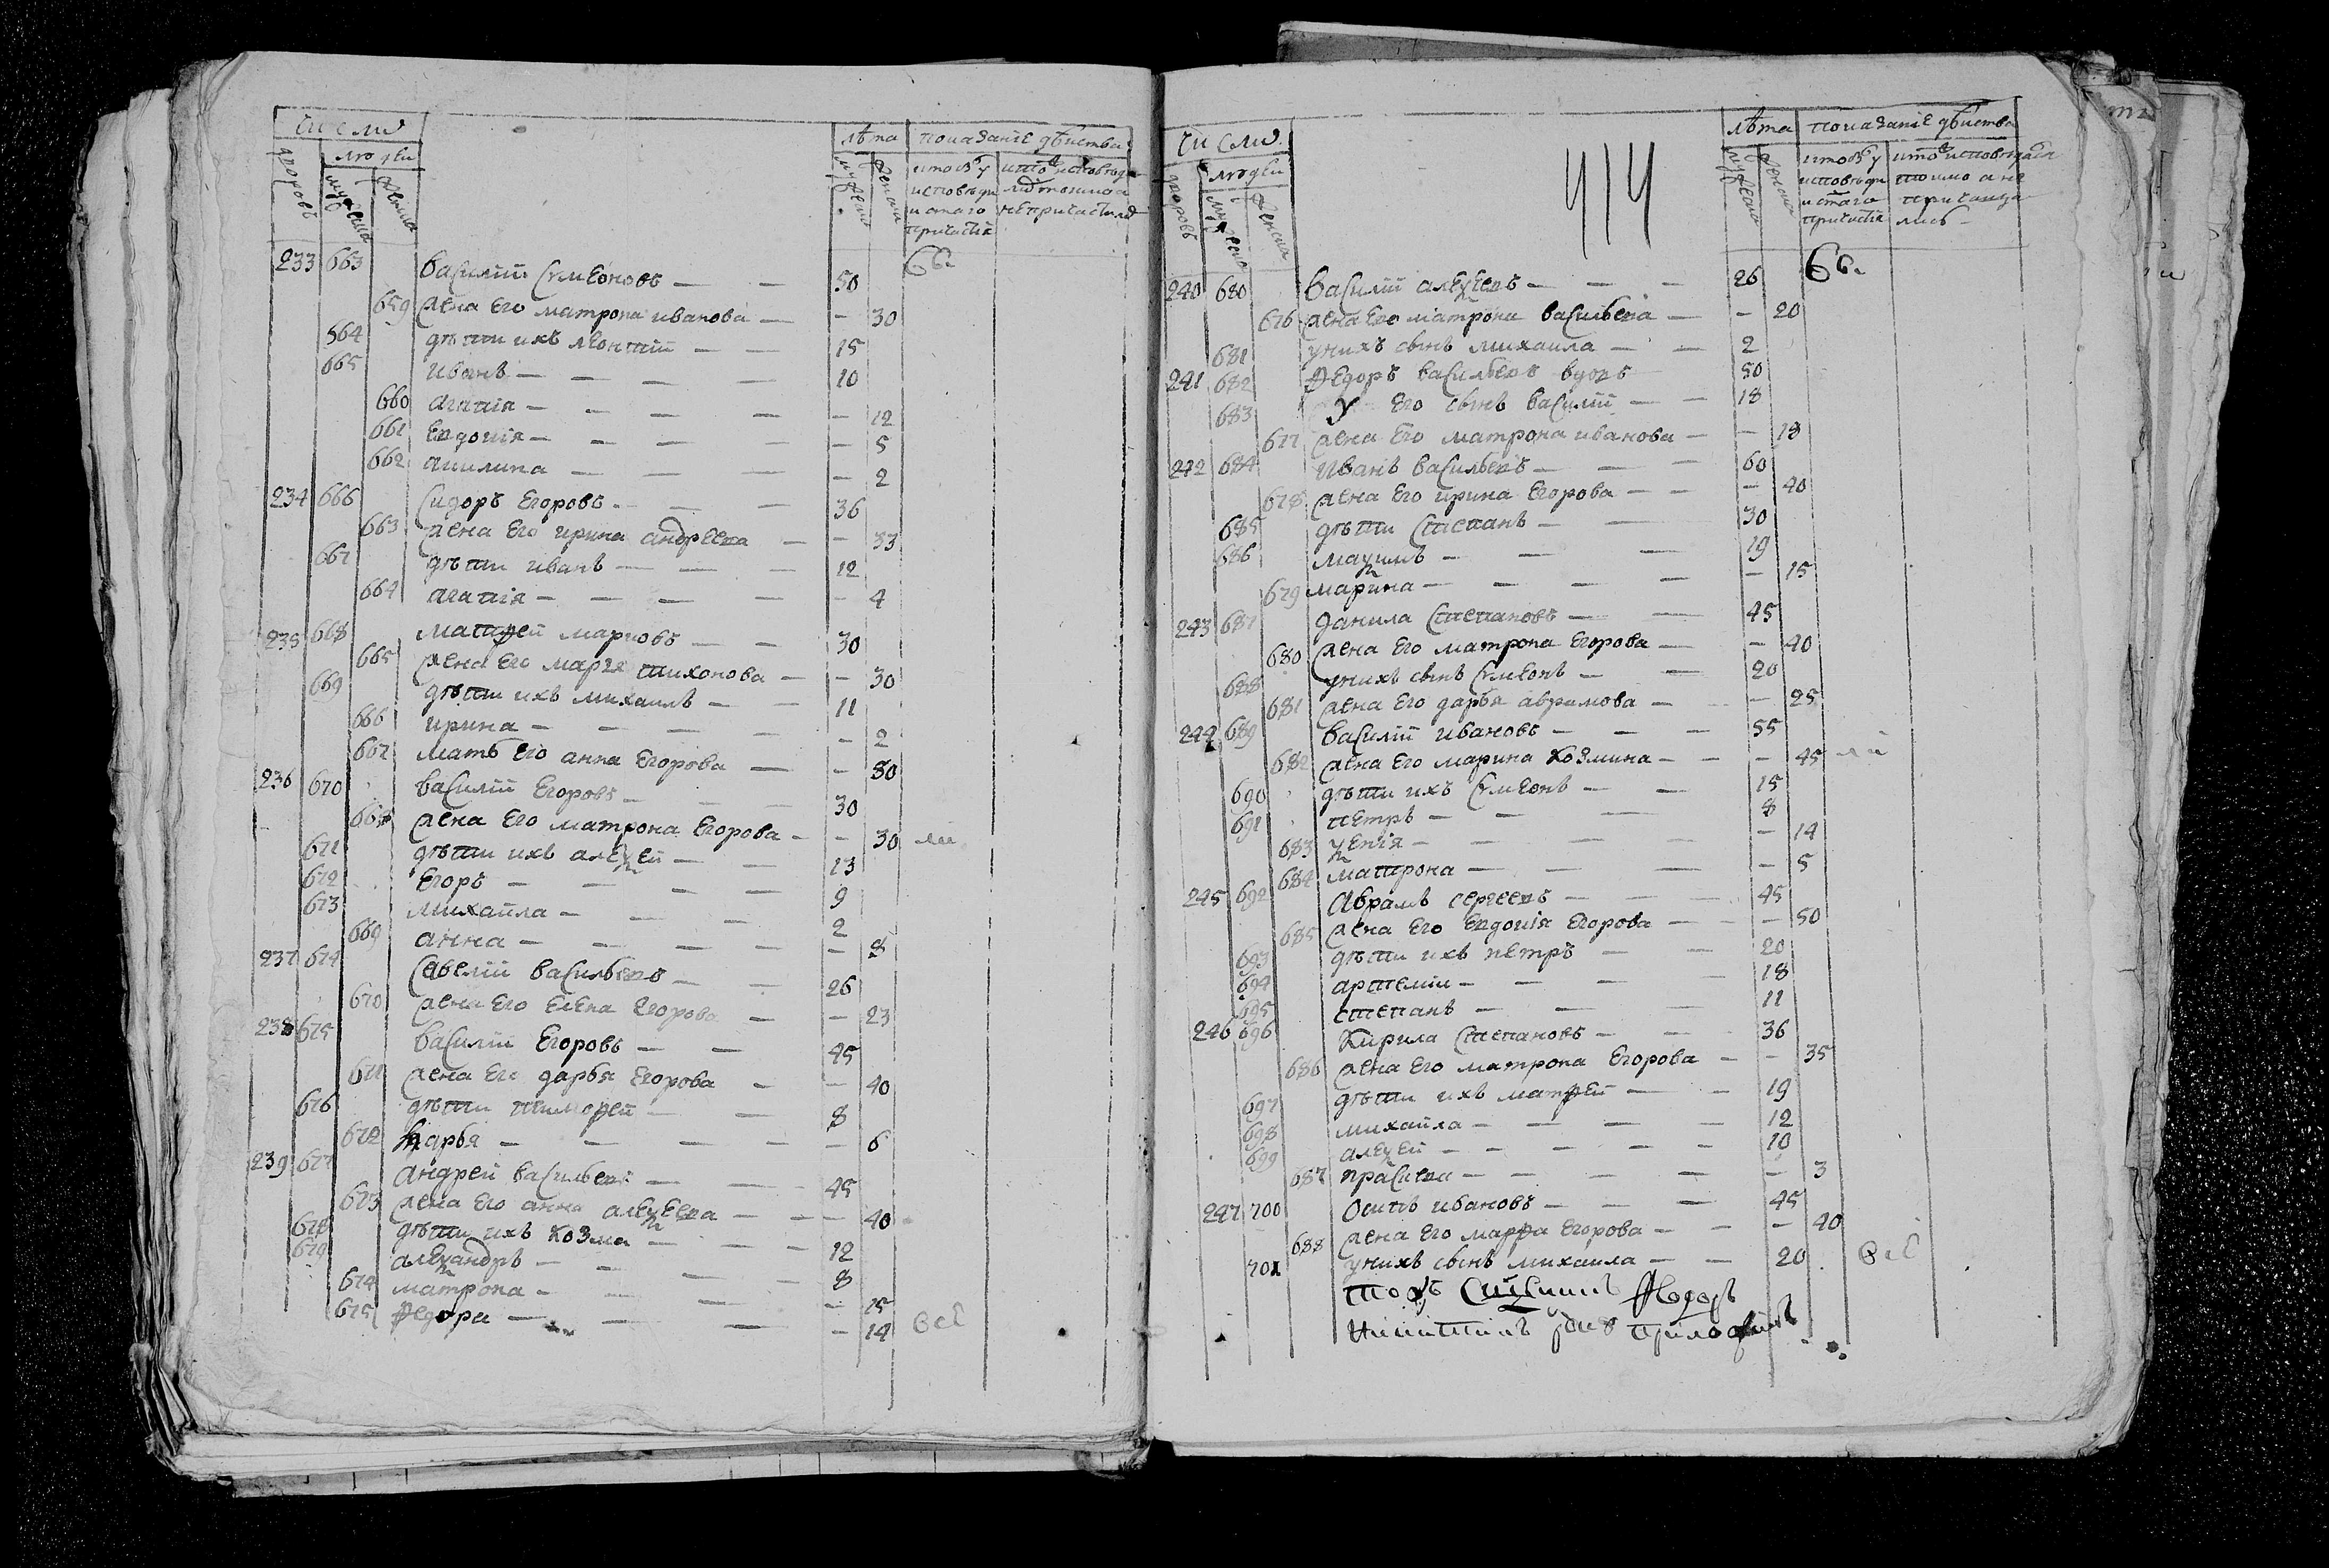 число
лѣта показаніе дѣиства
люди
дворовъ мужеска женска мужеска женска кто бы у исповѣди и стаго причастія
233 663 василій сѵмеоновъ — — 50
659 жена его матрона иванова — — 30
564 дѣти ихъ леонтій — — 15
665 иванъ — — — — 10
660 агапія — — — — — 12
661 евдокія — — — — — 5
662 акилина — — — — 2
234 666 сидоръ егоровъ — — — 36
663 жена его ирина андреева — — 33
667 дѣти иванъ — — — 12
664 агапія — — — — — 4
235 668 матфей марковъ — — 30
665 жена его марія тихонова — — 30
669 дѣти ихъ михаилъ — — 11
666 ирина — — — — — 2
667 мать его анна егорова — — 80
236 670 василій егоровъ — — — 30
668 жена его матрона егорова — — 30
671 дѣти ихъ алеѯей — — 13
672 егоръ — — — — 9
673 михайла — — — 2
669 анна — — — — — 8
237 674 савелій васильевъ — — 26
670 жена его елена егорова — — 23
238 675 василій егоровъ — — 45
671 жена его дарья егорова — — 40
676 дѣти тимофей — — 8
672 марья — — — — — 6
239 677 андрей васильевъ — — 45
673 жена его анна алеѯеева — — — 40
678 дѣти ихъ козма — — — 12
679 алеѯандръ — — — — 8
674 матрона — — — — 15
675 федора — — — — 14 всѣ
414
число
лѣта показаніе дѣиства
люди
дворовъ мужеска женска мужеска женска кто бы у исповѣди и стаго причастія
240 680 василій алеѯеевъ — — — 26
676 жена его матрона васильева — — 20
681 у нихъ сынъ михаила — — 2
241 682 федоръ васильевъ вдовъ 50
683 у его сынъ василій — — 18
677 жена его матрона иванова — — 18
242 684 иванъ васильевъ — — — 60
678 жена его ирина егорова — — — 40
685 дѣти степанъ — — 30
686 маѯимъ — — — 19
679 марина — — — — — 15
243 687 данила степановъ — — 45
680 жена его матрона егорова — — 40
688 у нихъ сынъ сѵмеонъ — — 20
681 жена его дарья аврамова — — 25
244 689 василій ивановъ — — — 55
682 жена его марина козмина — — — 45
690 дѣти ихъ сѵмеонъ — — 15
691 петръ — — — 8
683 ѯенія — — — — — 14
684 матрона — — — — 5
245 692 аврамъ сергеевъ — — — 45
685 жена его евдокія егорова — — — 50
693 дѣти ихъ петръ — — 20
694 артемій — — — — 18
695 степанъ — — — 11
246 696 кирила степановъ — — 36
686 жена его матрона егорова — — 35
697 дѣти ихъ матфей — — 19
698 михайла — — — — 12
699 алеѯей — — — — — 10
687 прасковья — — — — — 3
247 700 осипъ ивановъ — — — 45
688 жена его марфа егорова — — — 40
701 у нихъ сынъ михаила — — 20 всѣ